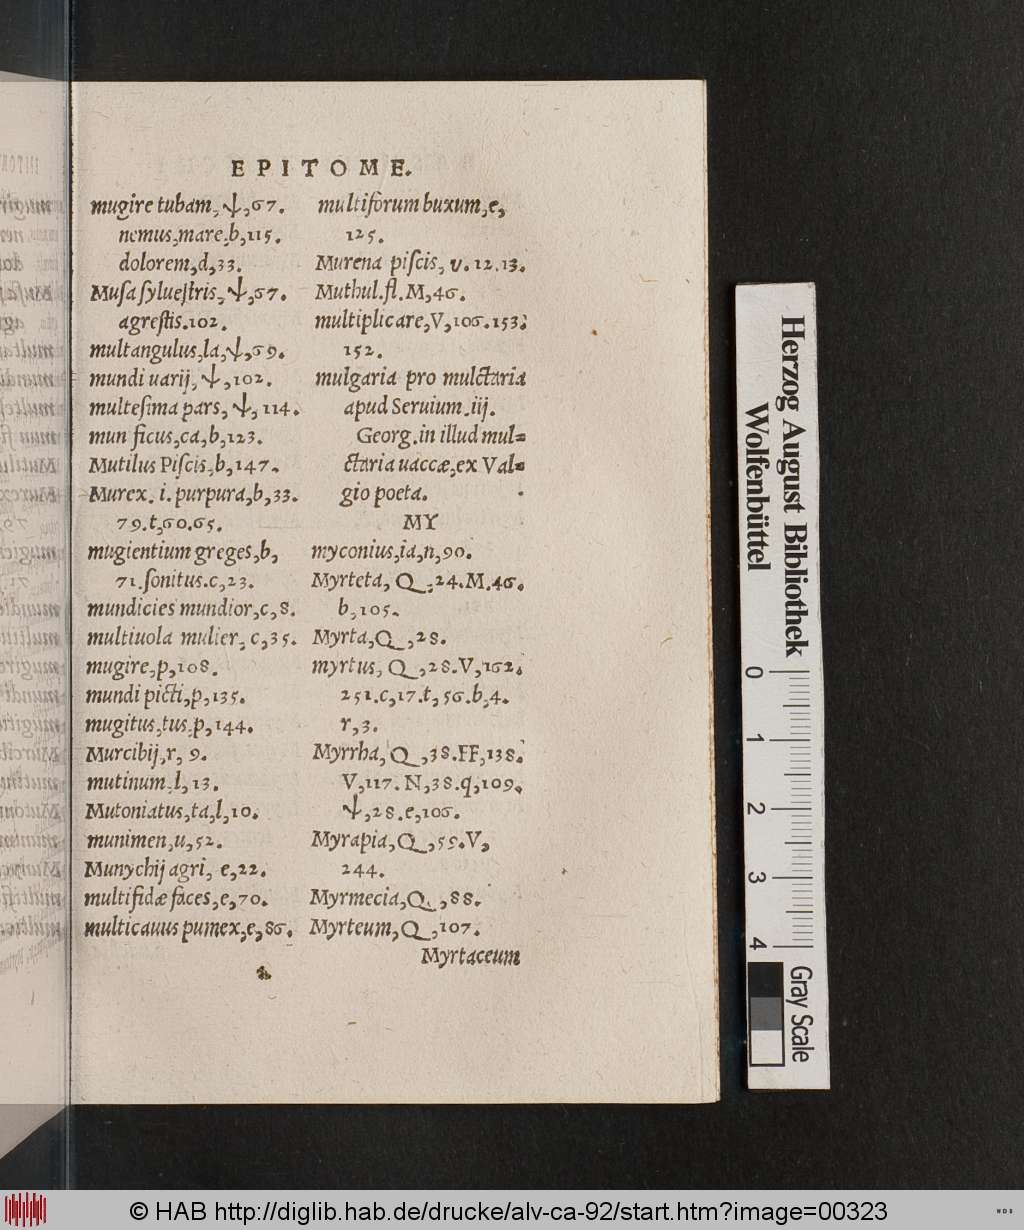 EPITOME.
mugire tubam, ψ, 67.
nemus, mare, b, 115.
dolorem, d, 33.
Muſa ſylueſtris, ψ, 67.
agreſtis. 102.
multangulus, la, ψ, 69.
mundi uarij, ψ, 102.
multeſima pars, ψ, 114.
mun ficus, ca, b, 123.
Mutilus Piſcis, b, 147.
Murex. i. purpura, b, 33.
79. t, 60. 65.
mugientium greges, b,
71. ſonitus. c, 23.
mundicies mundior, c, 8.
multiuola mulier, c, 35.
mugire, p, 108.
mundi picti, p, 135.
mugitus, tus, p, 144.
Murcibij, r, 9.
mutinum, l, 13.
Mutoniatus, ta, l, 10.
munimen, u, 52.
Munychij agri, e, 22.
multifidæ faces, e, 70.
multicauus pumex, e, 86.
multiforum buxum, e,
125.
Murena piſcis, v. 12. 13.
Muthul. fl. M, 46.
multiplicare, V, 106. 153.
152.
mulgaria pro mulctaria
apud Seruium. iij.
Georg. in illud mul=
ctaria uaccæ, ex Val=
gio poeta.
MY
myconius, ia, n, 90.
Myrteta, Q, 24. M, 46.
b, 105.
Myrta, Q, 28.
myrtus, Q, 28. V, 162.
251. c, 17. t, 56. b, 4.
r, 3.
Myrrha, Q, 38. FF, 138.
V, 117. N, 38. q, 109.
ψ, 28. e, 106.
Myrapia, Q, 59. V,
244.
Myrmecia, Q, 88.
Myrteum, Q, 107.
Myrtaceum
Herzog August Bibliothek
Wolfenbüttel
0 1 2 3 4
Gray Scale
© HAB http://diglib.hab.de/drucke/alv-ca-92/start.htm?image=00323